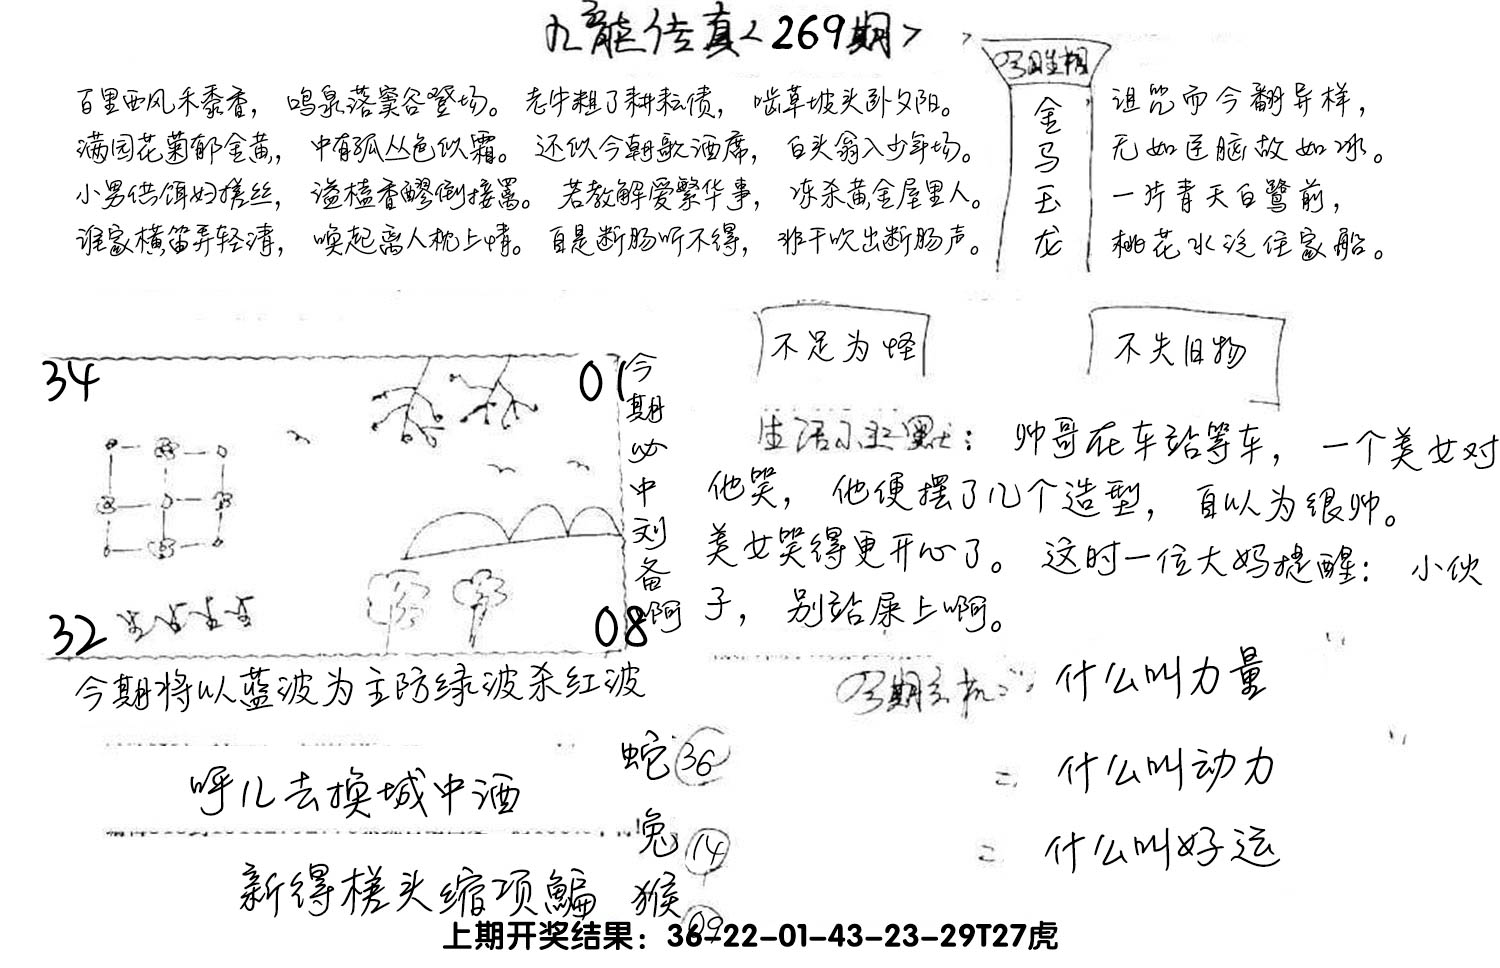 九龙传真<269期>
百里西风禾黍香，鸣泉落窦谷登场。老牛粗了耕耘债，啮草坡头卧夕阳。
满园花菊郁金黄，中有孤丛色似霜。还似今朝歌酒席，白头翁入少年场。
小男供饵妇搓丝，溢榼香醪倒接罱。若教解爱繁华事，冻杀黄金屋里人。
谁家横笛弄轻清，唤起离人枕上情。自是断肠听不得，非干吹出断肠声。
金马玉龙
诅咒而今翻异样，
无如匠脑故如冰。
一片青天白鹭前，
桃花水泛住家船。
不足为怪
不失旧物
34
01
32
08
今期必中刘备啊
生活小幽默：帅哥在车站等车，一个美女对
他笑，他便摆了几个造型，自以为很帅。
美女笑得更开心了。这时一位大妈提醒：小伙
子，别站屎上啊。
今期将以蓝波为主防绿波杀红波
什么叫力量
什么叫动力
什么叫好运
呼儿去换城中酒
新得槎头缩项鳊
蛇36
兔14
猴09
上期开奖结果：36-22-01-43-23-29T27虎